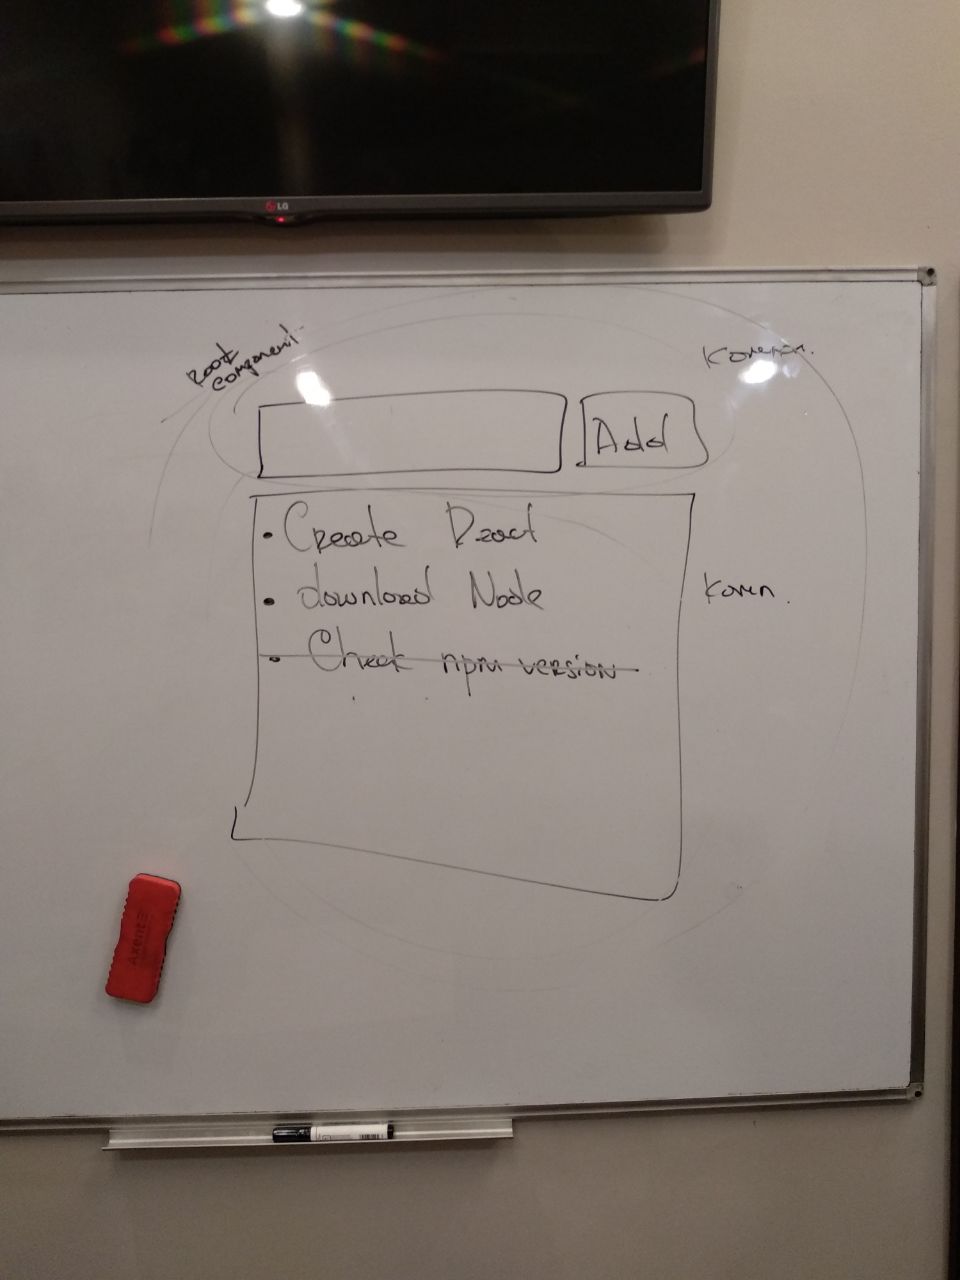 LG
Root
component
Компон.
Add
• Create React
• download Node
Комп.
• Check npm version
Axent